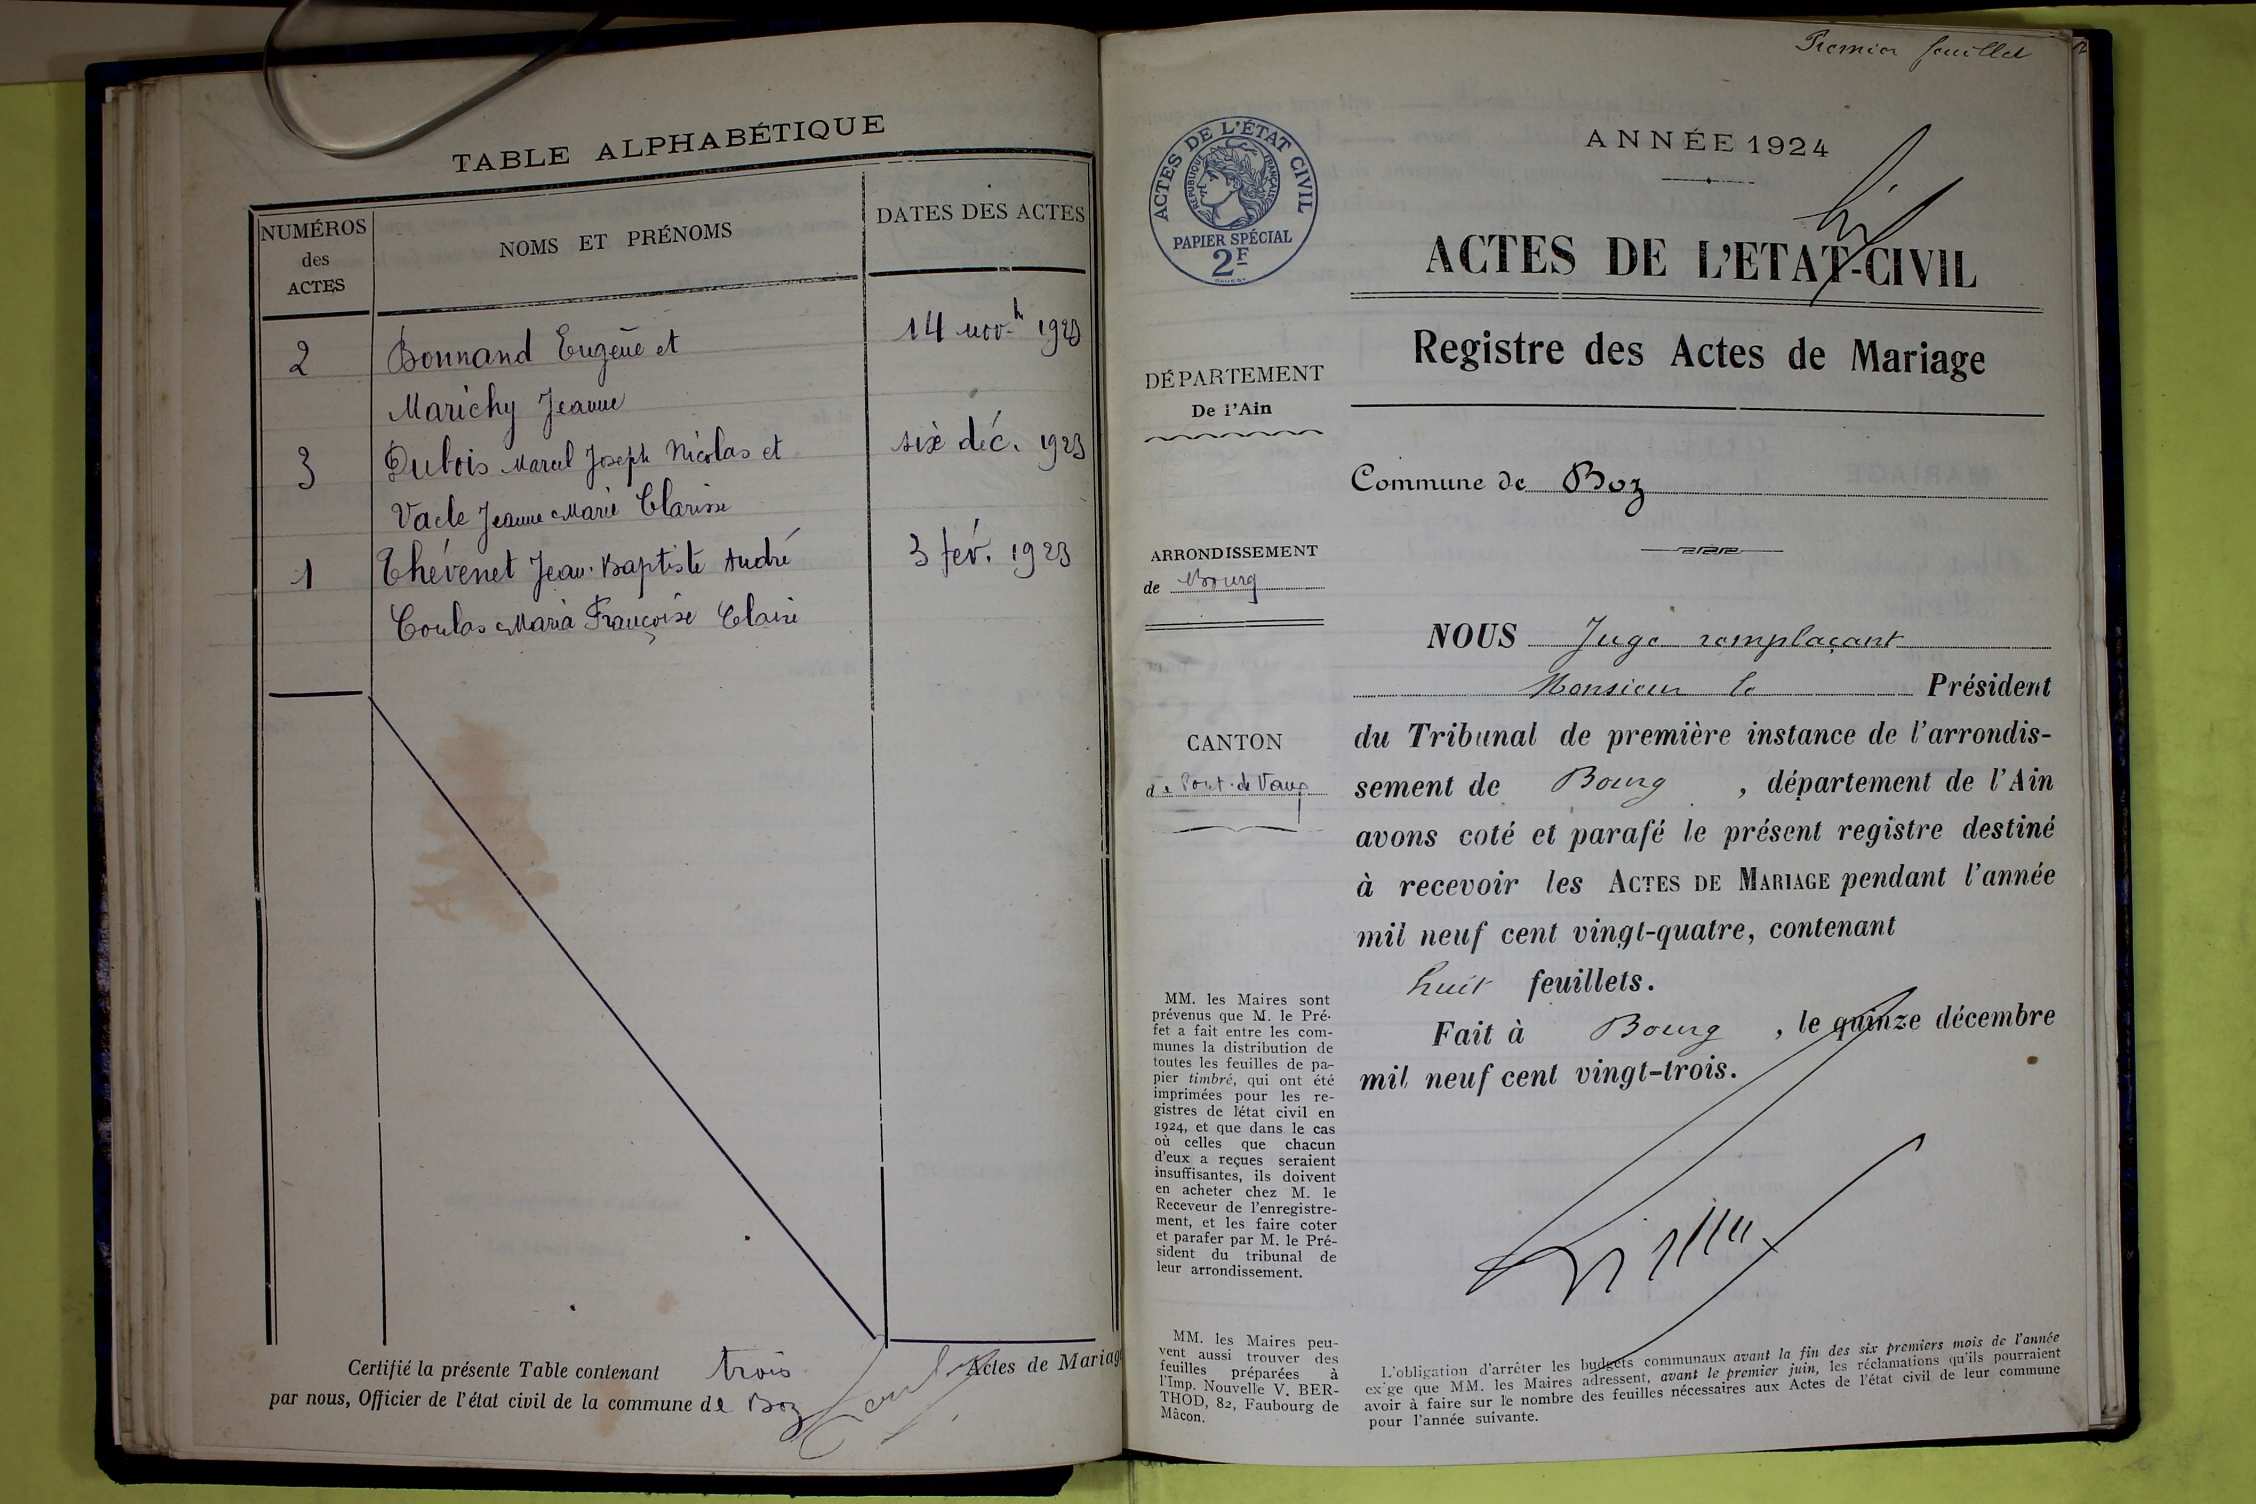 TABLE ALPHABÉTIQUE
NUMÉROS des ACTES
NOMS ET PRÉNOMS
DATES DES ACTES
2 Bonnand Eugène et 14 nov. 1923
Marichy Jeanne
3 Dubois Marcel Joseph Nicolas et six déc. 1923
Vacle Jeanne Marie Clarisse
1 Thévenet Jean-Baptiste André 3 fév. 1923
Coulas Maria Françoise Claire
Certifié la présente Table contenant trois Actes de Mariage
par nous, Officier de l'état civil de la commune de Boz
Premier feuillet
ANNÉE 1924
ACTES DE L'ÉTAT CIVIL
RÉPUBLIQUE FRANÇAISE
PAPIER SPÉCIAL
2F
ACTES DE L'ETAT-CIVIL
Registre des Actes de Mariage
DÉPARTEMENT
De l'Ain
Commune de Boz
ARRONDISSEMENT
de Bourg
CANTON
de Pont-de-Vaux
NOUS Juge remplaçant
Monsieur le Président
du Tribunal de première instance de l'arrondis-
sement de Bourg, département de l'Ain
avons coté et parafé le présent registre destiné
à recevoir les ACTES DE MARIAGE pendant l'année
mil neuf cent vingt-quatre, contenant
huit feuillets.
Fait à Bourg, le quinze décembre
mil neuf cent vingt-trois.
MM. les Maires sont
prévenus que M. le Pré-
fet a fait entre les com-
munes la distribution de
toutes les feuilles de pa-
pier timbré, qui ont été
imprimées pour les re-
gistres de l'état civil en
1924, et que dans le cas
où celles que chacun
d'eux a reçues seraient
insuffisantes, ils doivent
en acheter chez M. le
Receveur de l'enregistre-
ment, et les faire coter
et parafer par M. le Pré-
sident du tribunal de
leur arrondissement.
MM. les Maires peu-
vent aussi trouver des
feuilles préparées à
l'Imp. Nouvelle V. BER-
THOD, 82, Faubourg de
Mâcon.
L'obligation d'arrêter les budgets communaux avant la fin des six premiers mois de l'année
ex'ge que MM. les Maires adressent, avant le premier juin, les réclamations qu'ils pourraient
avoir à faire sur le nombre des feuilles nécessaires aux Actes de l'état civil de leur commune
pour l'année suivante.